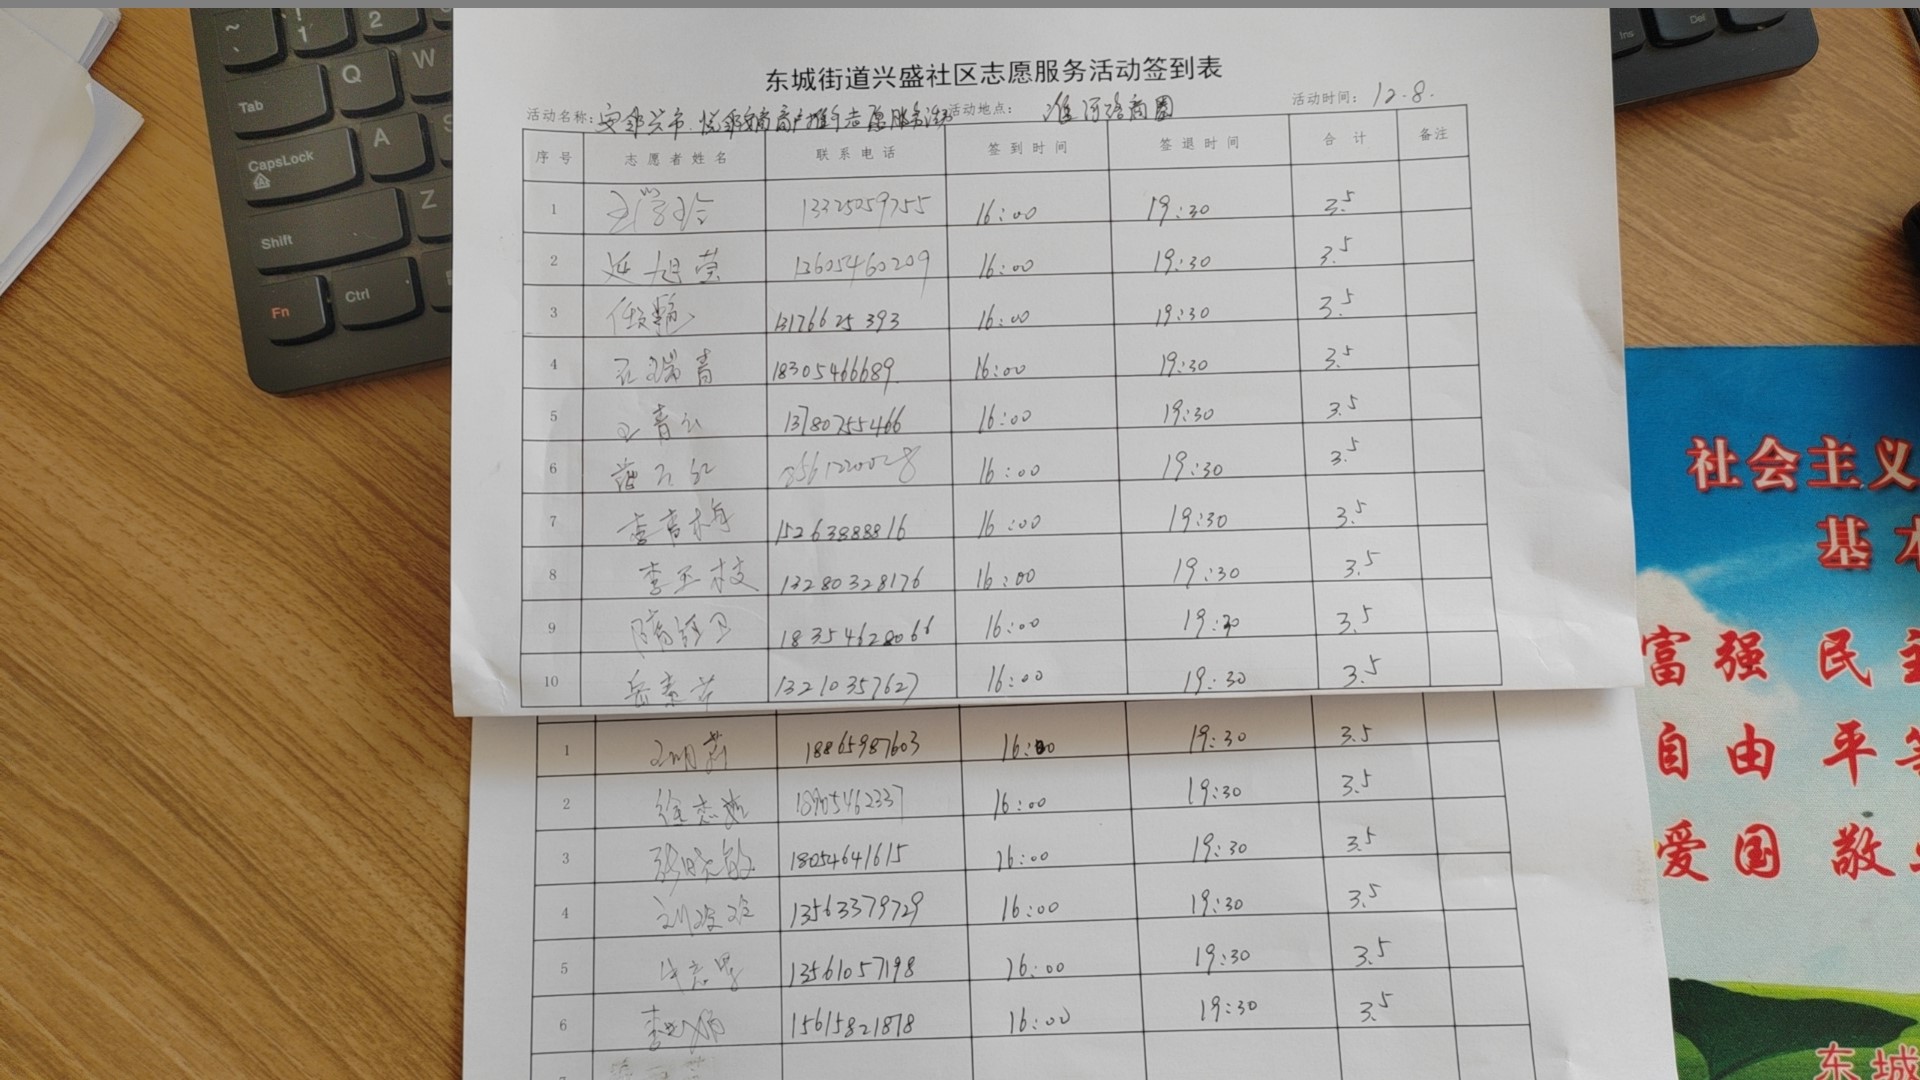 东城街道兴盛社区志愿服务活动签到表
活动名称: 活动地点: 淮河路商圈 活动时间: 12.8.
序号 志愿者姓名 联系电话 签到时间 签退时间 合计 备注
1 13325059755 16:00 19:30 3.5
2 延旭莹 13605460209 16:00 19:30 3.5
3 13176625393 16:00 19:30 3.5
4 石瑞青 18305466689 16:00 19:30 3.5
5 王青云 13780755466 16:00 19:30 3.5
6 16:00 19:30 3.5
7 李青梅 15263888816 16:00 19:30 3.5
8 李玉枝 13280328176 16:00 19:30 3.5
9 18354628066 16:00 19:30 3.5
10 岳素芹 13210357627 16:00 19:30 3.5
1 王明莉 18865987603 16:00 19:30 3.5
2 16:00 19:30 3.5
3 张晓敏 18054641615 16:00 19:30 3.5
4 刘波波 13563379729 16:00 19:30 3.5
5 13561057198 16:00 19:30 3.5
6 15615821878 16:00 19:30 3.5
~
`
!
1
2
Tab
Q
W
CapsLock
A
S
Shift
Z
Fn
Ctrl
Ins
Del
社会主义
基本
富强 民主
自由 平等
爱国 敬业
东城